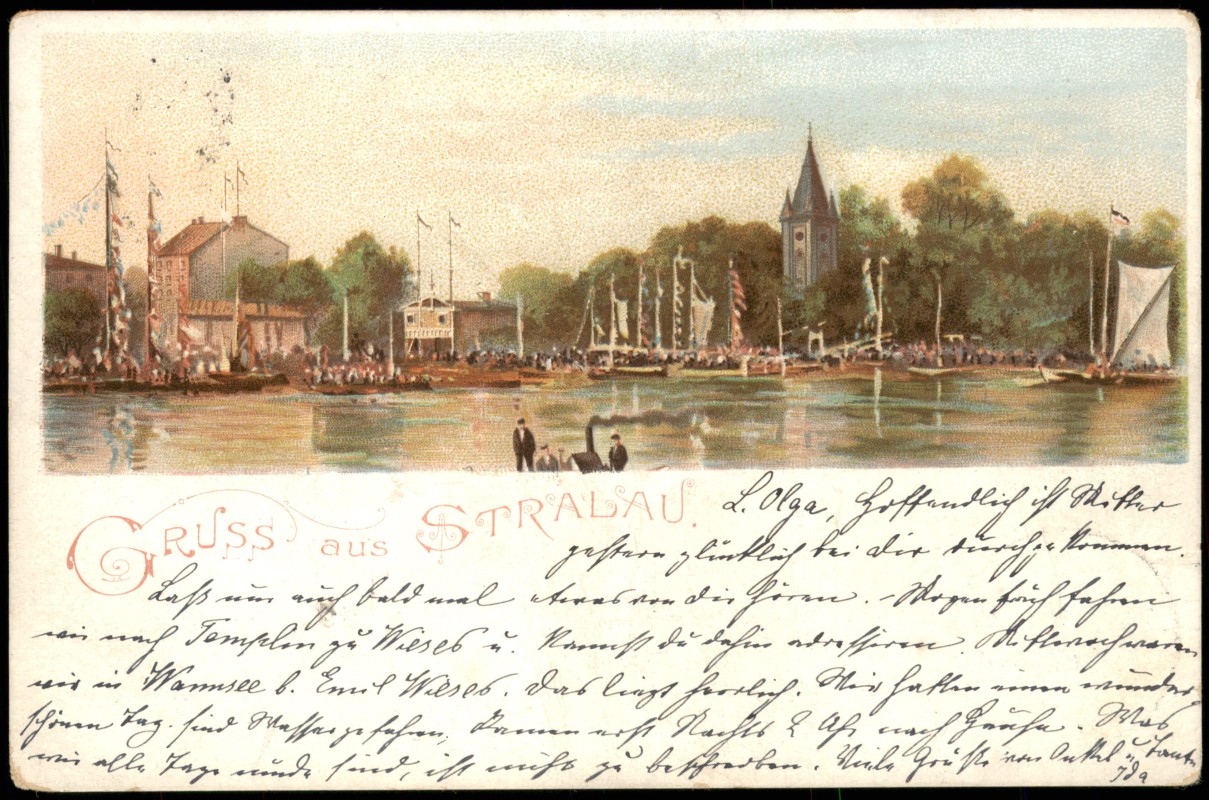 GRUSS aus STRALAU.
L. Olga, Hoffendlich ist Mutter
gestern glücklich bei dir durchgekommen.
Laß nun auch bald mal etwas von dir hören. - Morgen früh fahren
wir nach Templin zu Wieses u. kannst du dahin adressiren. Mittwoch waren
wir in Wannsee b. Emil Wieses. Das liegt herrlich. Wir hatten einen wunder
schönen Tag. sind Wasser gefahren, kamen erst Nachts 2 Uhr nach Hause. Was
wir alle Tage müde sind, ist nicht zu beschreiben. Viele Grüße von Onkel u. Tante
Ida